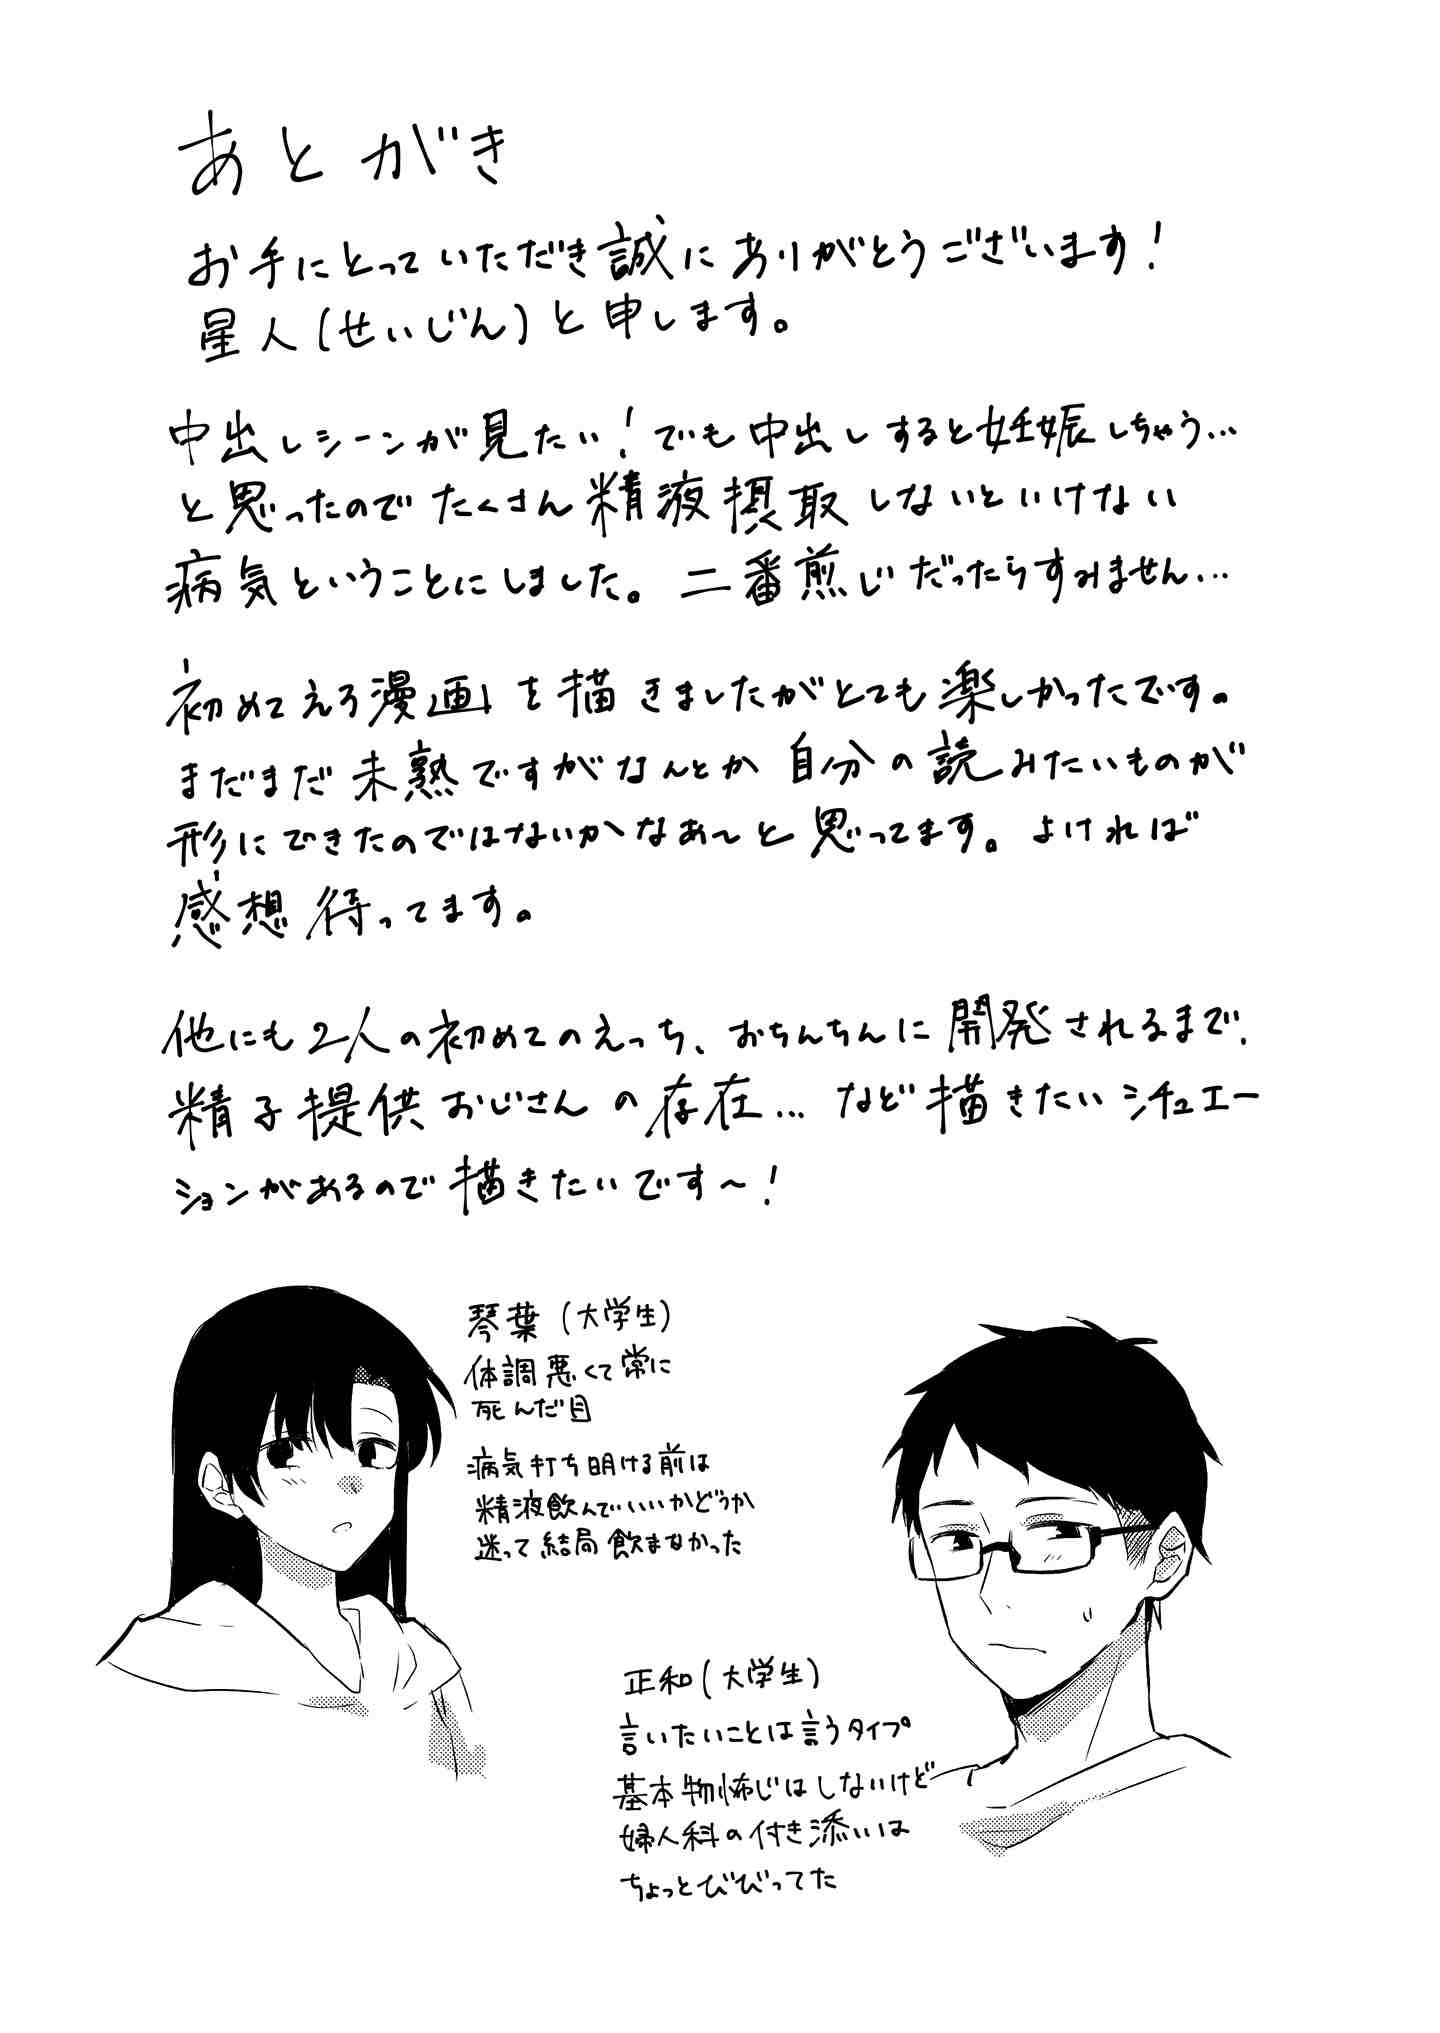 あとがき
お手にとっていただき誠にありがとうございます!
星人(せいじん)と申します。
中出しシーンが見たい!でも中出しすると妊娠しちゃう…
と思ったのでたくさん精液摂取しないといけない
病気ということにしました。二番煎じだったらすみません…
初めてえろ漫画を描きましたがとても楽しかったです。
まだまだ未熟ですがなんとか自分の読みたいものが
形にできたのではないかなあ〜と思ってます。よければ
感想待ってます。
他にも2人の初めてのえっち、おちんちんに開発されるまで、
精子提供おじさんの存在…など描きたいシチュエー
ションがあるので描きたいです〜!
琴葉(大学生)
体調悪くて常に
死んだ目
病気打ち明ける前は
精液飲んでいいかどうか
迷って結局飲まなかった
正和(大学生)
言いたいことは言うタイプ
基本物怖じはしないけど
婦人科の付き添いは
ちょっとびびってた